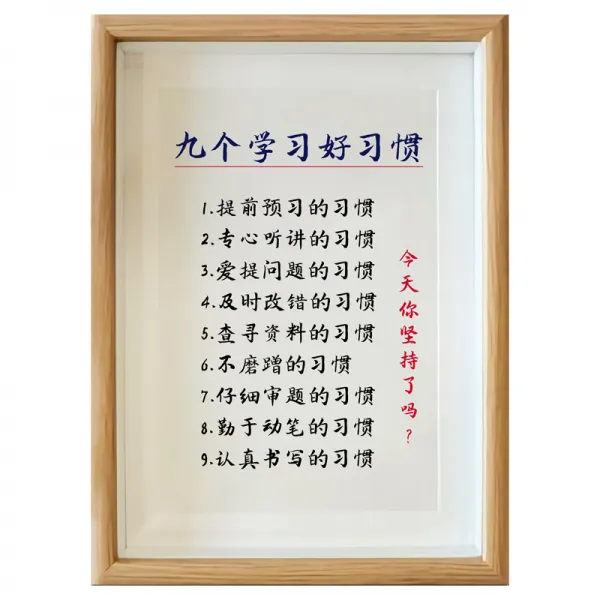 九个学习好习惯
1.提前预习的习惯
2.专心听讲的习惯
3.爱提问题的习惯
4.及时改错的习惯
5.查寻资料的习惯
6.不磨蹭的习惯
7.仔细审题的习惯
8.勤于动笔的习惯
9.认真书写的习惯
今天你坚持了吗？